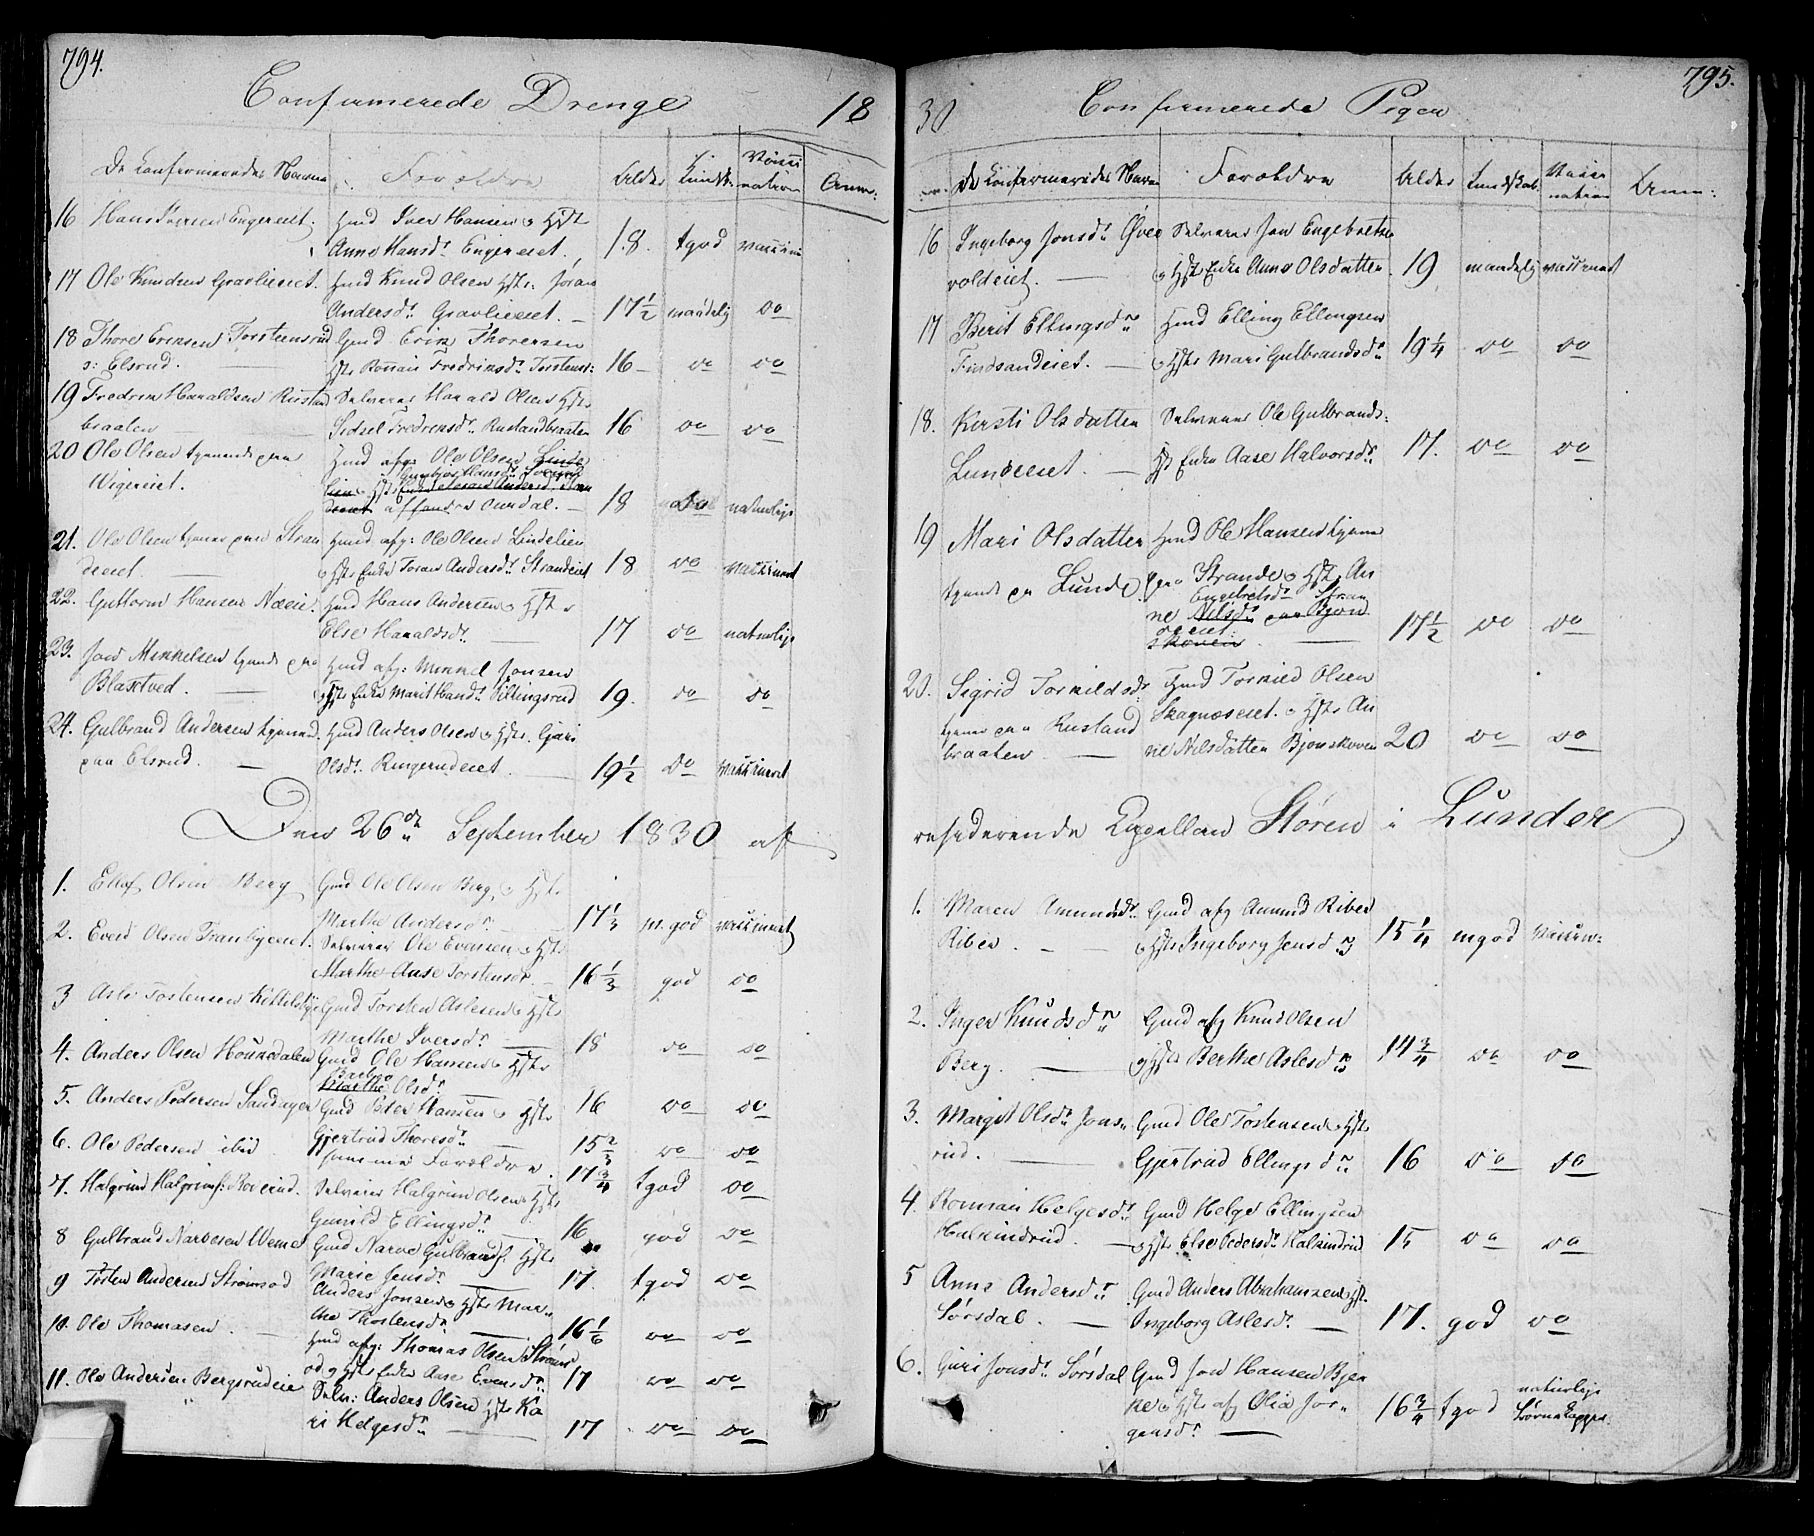 794.
Confirmerede Drenge
18
De Confirmeredes Navne
Forældre
Alder
Kundsk.
Vacci
nation
Anm:
16 Hans Iversen Engereiet.
Huusmand Iver Hansen & Hustr
Anne Hansd. Engereiet.
18. tgod vaccin
17 Ole Knudsen Gravlieeiet.
Hmd Knud Olsen Hstr: Joran
Andersd. Gravlieeiet. —
17½ maadelig do
18 Thore Ericksen Torstensrud
s: Elsrud. —
Gmd Erik Thoresen
Hstr Ronnau Fredriksd. Torstensr:
16 — do do
19 Fredrik Haraldsen Rustad
braaten —
Selveier Harald Olsen Hstr
Sidsel Fredriksd. Rustandbraaten
16 do do
20 Ole Olsen tjenende paa
Wigereiet.
Hmd afg: Ole Olsen
af søndre Aurdal. —
18 do naturlige
21. Ole Olsen tjener paa Stran
deeiet. —
Hmd afg: Ole Olsen Lindelien
& Hstr Enke Joran Andersd. Strandeiet
18 do vaccineret
22. Guttorm Hansen Næseie.
Hmd Hans Andersen & Hstr
Else Haraldsd. —
17 do naturlige
23. Jon Mikkelsen tjener paa
Blaktved. —
Hmd afg: Mikkel Jonsen
& Hstr Enke Marit Hansd. Pillingsrud
19. do do
24. Gulbrand Andersen tjenend.
paa Elsrud. —
Hmd Anders Olsen & Hstr. Guri
Olsd. Ringerudeiet. —
19½ do vaccineret
Den 26de September 1830 af
1. Ellef Olsen Berg
Gmd Ole Olsen Berg, & Hstr
Marthe Andersd.
17⅓ m. god vaccineret
2. Evend Olsen Tranbyeeiet.
Selveier Ole Evensen & Hstr
Marthe Aase Torstensdr. —
16⅓ god do
3 Asle Tostensen Kittelsby
Gmd Torsten Aslesen & Hstr
Marthe Iversd. —
18 do do
4. Anders Olsen Houvedalen
Gmd Ole Hansen & Hstr
Barbro
Marthe Olsd.
16 do do
5. Anders Pedersen Sandager
Gmd Peder Hansen & Hstr
Gjertrud Thoresd. —
15⅔ do do
6. Ole Pedersen ibid
samme Forældre.
17¾ tgod do
7. Halgrim Halgrims: Roverud.
Selveier Halgrim Olsen & Hstr
Gunild Ellingsd. —
16 god do
8 Gulbrand Narvesen Weme
Gmd Narve Gulbrands. Hstr
Marie Jensd. —
17. tgod do
9 Tosten Andersen Strømsod
Anders Jonsen & Hstr Mar
the Thostensd. —
16⅙ do do
10. Ole Thomasen. —
Hmd afg: Thomas Olsen Strøms
od & Hstr Enke Aase Evensd.
17 do do
11. Ole Andersen Bergsrudeie
Selv: Anders Olsen Hstr Ka
ri Helgesd. —
17 do do
795.
30
Confirmerede Piger
De Confirmeredes Navne
Forældre
Alder
Kundskab.
Vacci
nation
Anm:
16 Ingeborg Jonsd. Øver
voldeiet. —
Selveier Jon Engebretse
& Hstr Enke Anne Olsdatter
19 maadelig vaccineret
17 Berit Ellingsdr
Findsandeiet. —
Hmd Elling Ellingsen
& Hstr Mari Gulbrandsd.
19¼ do do
18. Kersti Olsdatter
Lundeeiet. —
Selveier Ole Gulbrands:
Hst Enke Aase Halvorsd.
17. do do
19 Mari Olsdatter
tjenende paa Lunde
Hmd Ole Hansen tjener
paa Strande & Hst. An
Engebretsd. Stran
ne Nilsd. paa Bjon
deeiet.
skoven —
17½ do do
20. Sigrid Torkildsd.
tjener paa Rustand
braaten —
Hmd Torkild Olsen
Skagnæseiet. & Hstr An
ne Nilsdatter Bjonskoven
20 do do
residerende Capellan Stören i Lunder
1. Maren Amundsd.
Riber. —
Gmd afg Amund Riber
& Hstr Ingeborg Jensd
15¼ mgod Vaccin:
2. Inger Knudsd
Berg. —
Gmd afg Knud Olsen
& Hstr Berthe Aslesd
14¾ do do
3. Margit Olsd. Jons
rud. —
Gmd Ole Tostensen & Hstr
Gjertrud Ellingsd
16 do do
4. Ronnau Helgesd.
Halkindrud. —
Gmd Helge Ellingsen
& Hstr Else Pedersd. Halkindrud
15 do do
5 Anne Andersd
Sørsdal. —
Gmd Anders Abrahamsen & Hst.
Ingeborg Aslesd. —
17. god do
6. Guri Jonsd. Sørsdal
Gmd Jon Hansen Bjer
ke & Hstr afg Olia Jør
gensd. —
16¾ tgod naturlige
Börnekopper